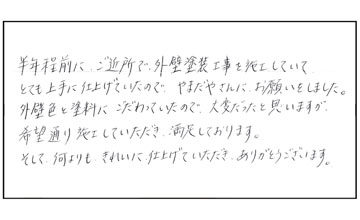 半年程前に、ご近所で、外壁塗装工事を施工していて
とても上手に仕上げていたので、やまだやさんに、お願いをしました。
外壁色と塗料に、こだわっていたので、大変だったと思いますが、
希望通り施工していただき、満足しております。
そして、何よりも、きれいに仕上げていただき、ありがとうございます。